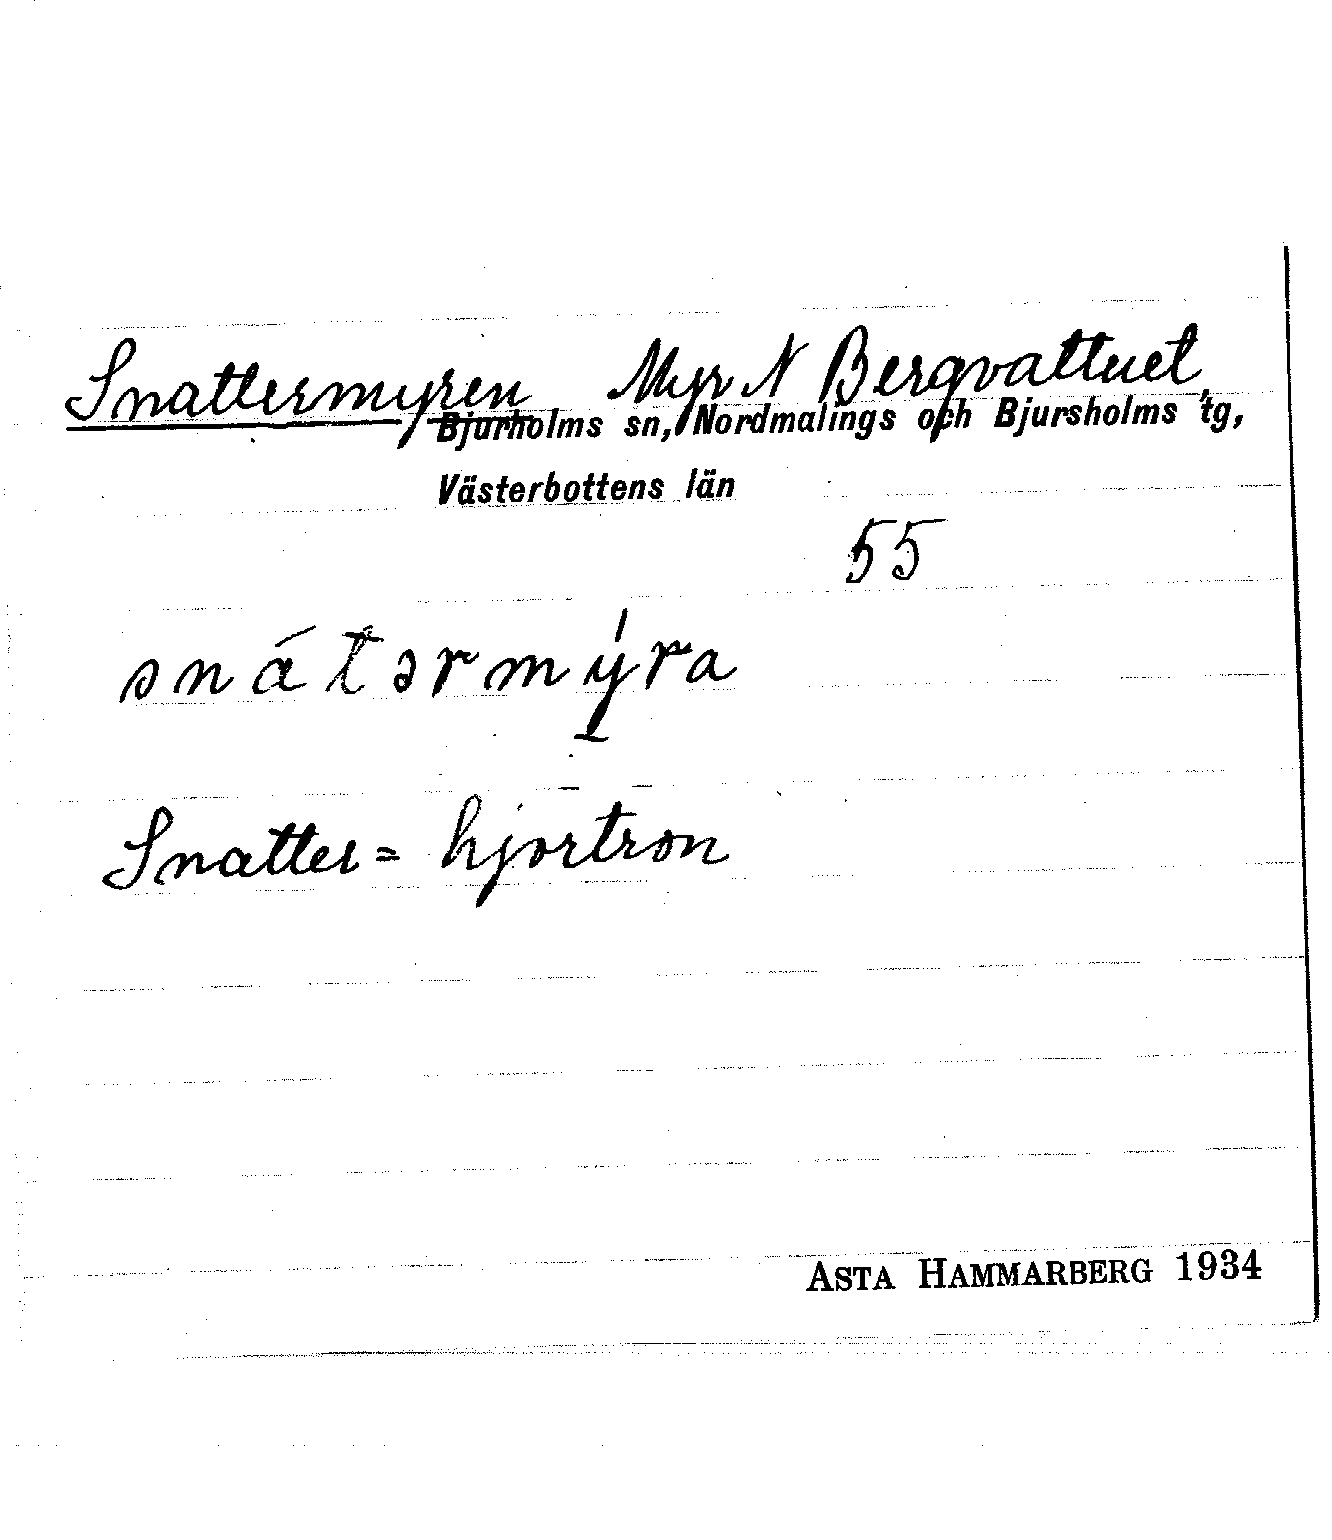 Snattermyren Myr N Bergvattnet
Bjurholms sn, Nordmalings och Bjursholms tg,
Västerbottens län
55
snát̄ərmýra
Snatter = hjortron
ASTA HAMMARBERG 1934